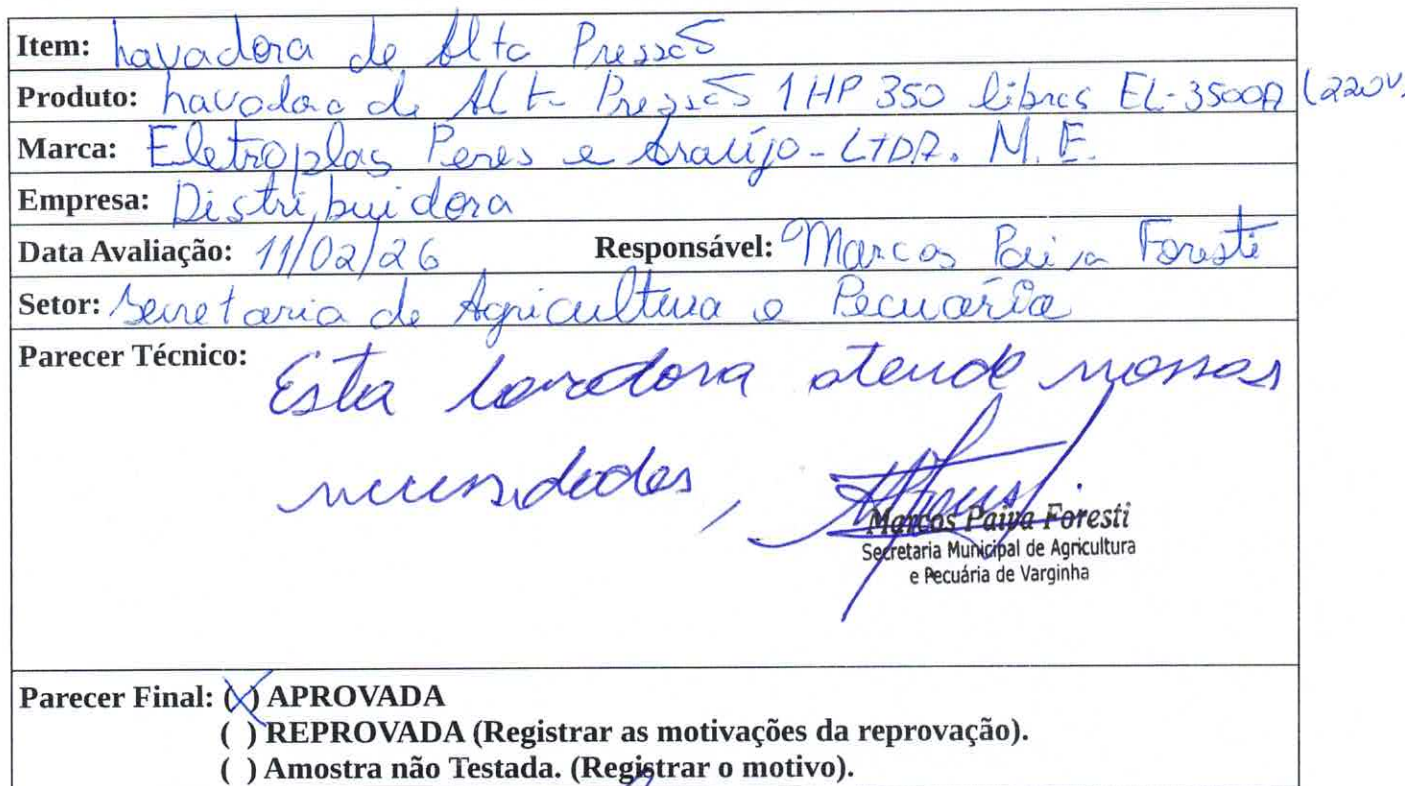 Item: Lavadora de Alta Pressão
Produto: Lavadora de Alta Pressão 1 HP 350 libras EL-3500A (220V)
Marca: Eletroplas Peres e Araújo - LTDA. M.E.
Empresa: Distribuidora
Data Avaliação: 11/02/26 Responsável: Marcos Paiva Foresti
Setor: Secretaria de Agricultura e Pecuária
Parecer Técnico: Esta lavadora atende nossas
necessidades,
Marcos Paiva Foresti
Secretaria Municipal de Agricultura
e Pecuária de Varginha
Parecer Final: (X) APROVADA
( ) REPROVADA (Registrar as motivações da reprovação).
( ) Amostra não Testada. (Registrar o motivo).